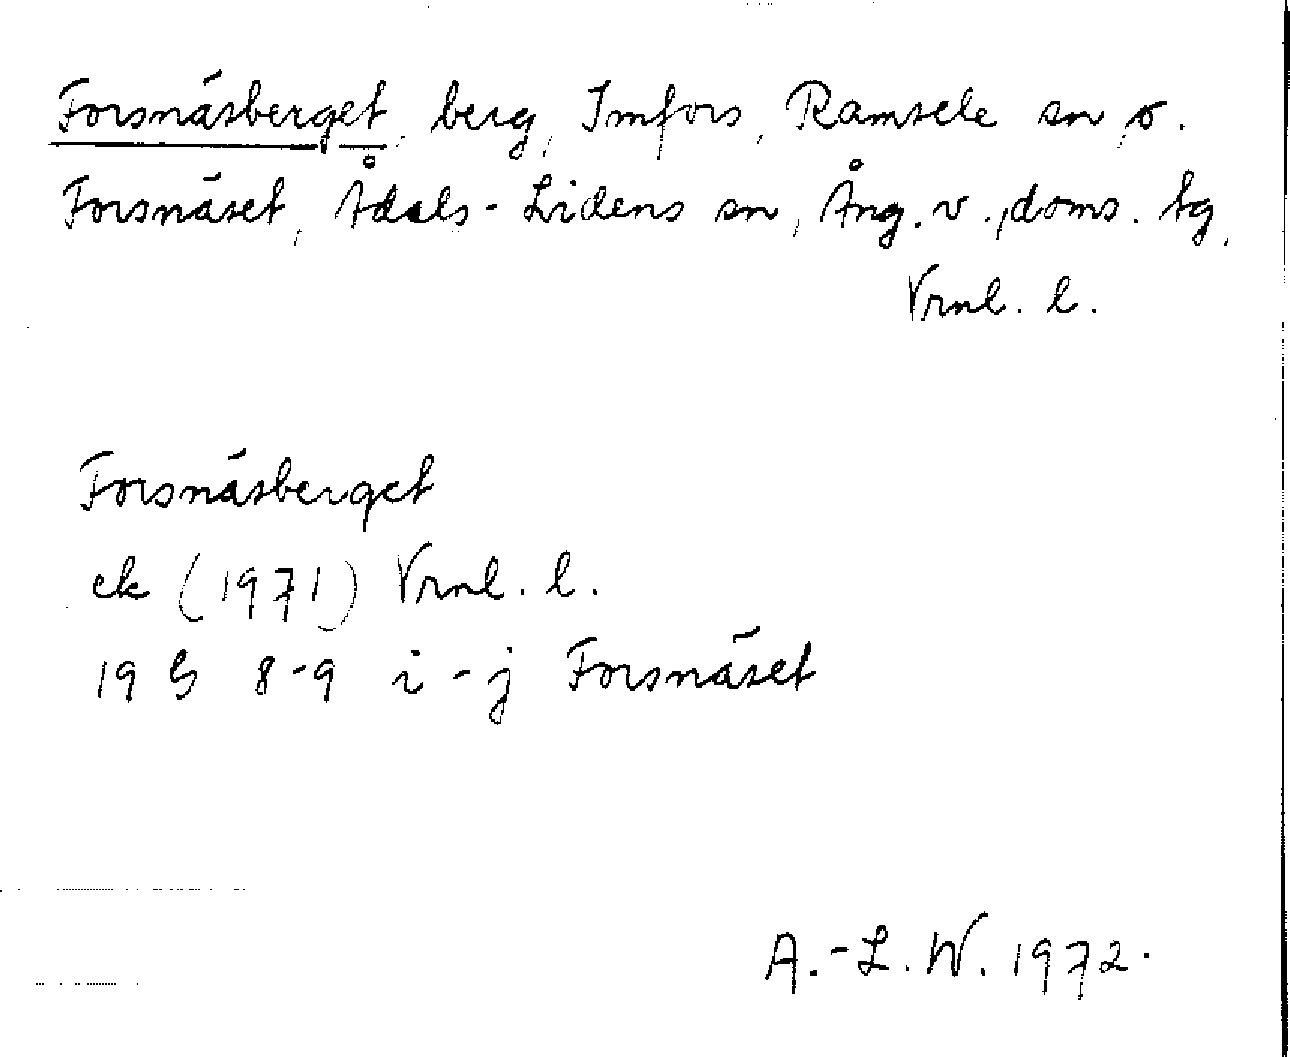 Forsnäsberget, berg, Imfors, Ramsele sn, o.
Forsnäset, Ådals-Lidens sn, Ång. v., doms. tg,
Vrnl. l.
Forsnäsberget
ek (1971) Vrnl. l.
19 G 8-9 i-j Forsnäset
A.-L. W. 1972.